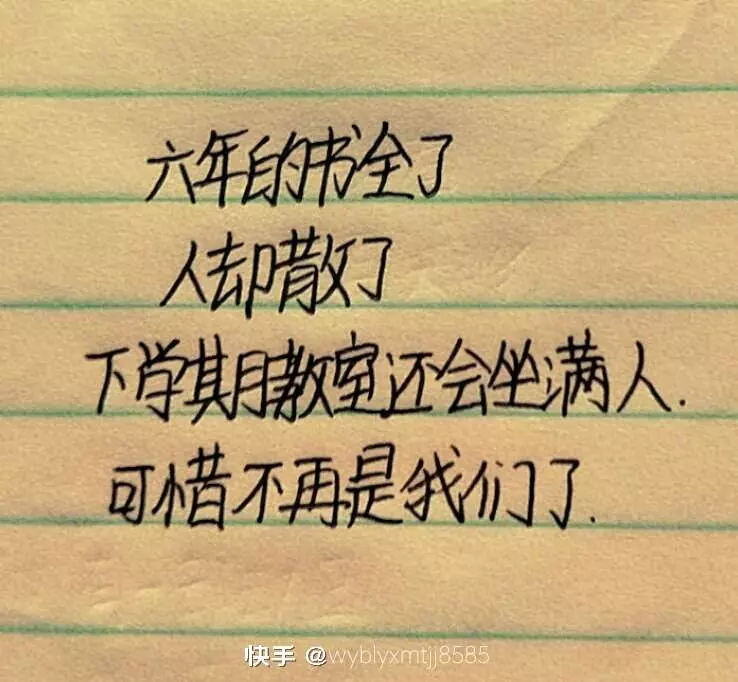 六年的书全了
人却散了
下学期教室还会坐满人.
可惜不再是我们了.
快手 @wyblyxmtjj8585